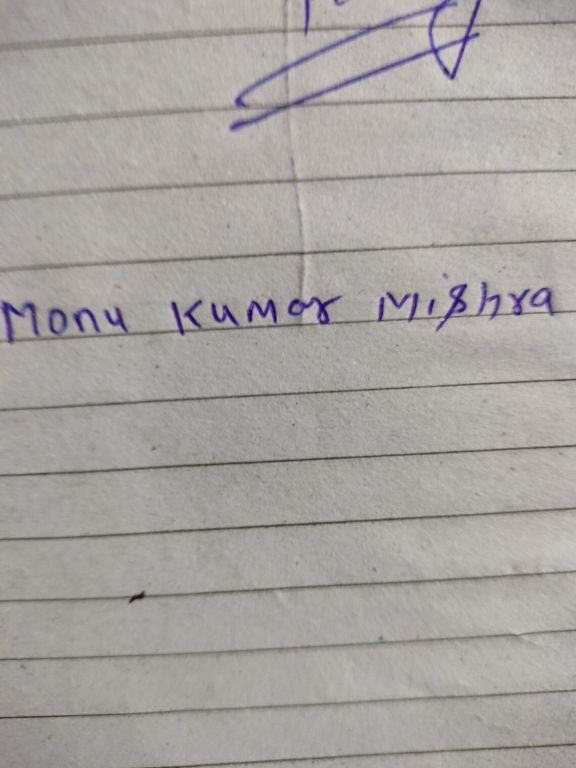 Monu Kumar Mishra